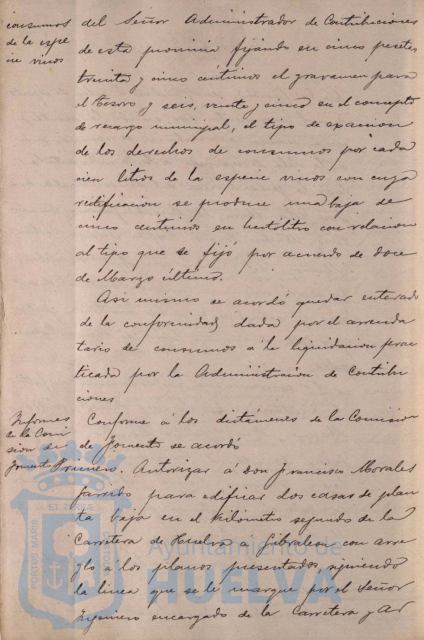 consumos
de la espe
cie vinos
del Señor Administrador de Contribuciones
de esta provincia fijando en cinco pesetas
treinta y cinco céntimos el gravamen para
el Tesoro y seis, veinte y cinco en el concepto
de recargo municipal, el tipo de exaccion
de los derechos de consumos por cada
cien litros de la especie vinos con cuya
rectificacion se produce una baja de
cinco céntimos en hectólitro con relacion
al tipo que se fijó por acuerdo de doce
de Marzo último.
Asi mismo se acordó quedar enterado
de la conformidad dada por el arrenda
tario de consumos á la liquidacion prac
ticada por la Administracion de Contribu
ciones
Informes
de la Comi
sion de
Fomento
Conforme á los dictámenes de la Comision
de Fomento se acordó
Primero. Autorizar á don Francisco Morales
Garrido para edificar dos casas de plan
ta baja en el kilometro segundo de la
Carretera de Huelva á Gibraleon con arre
glo á los planos presentados, siguiendo
la linea que se le marque por el Señor
Ingeniero encargado de la Carretera y Ar
PORTUS MARIS
Ayuntamiento de
HUELVA